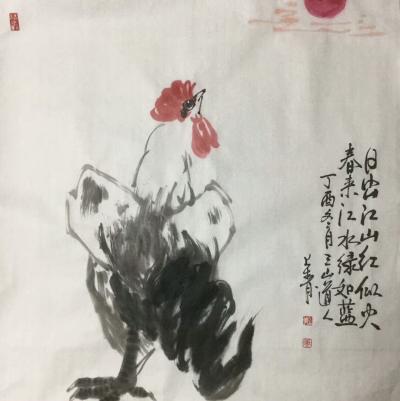 日出江山红似火
春来江水绿如蓝
丁酉冬月三山道人